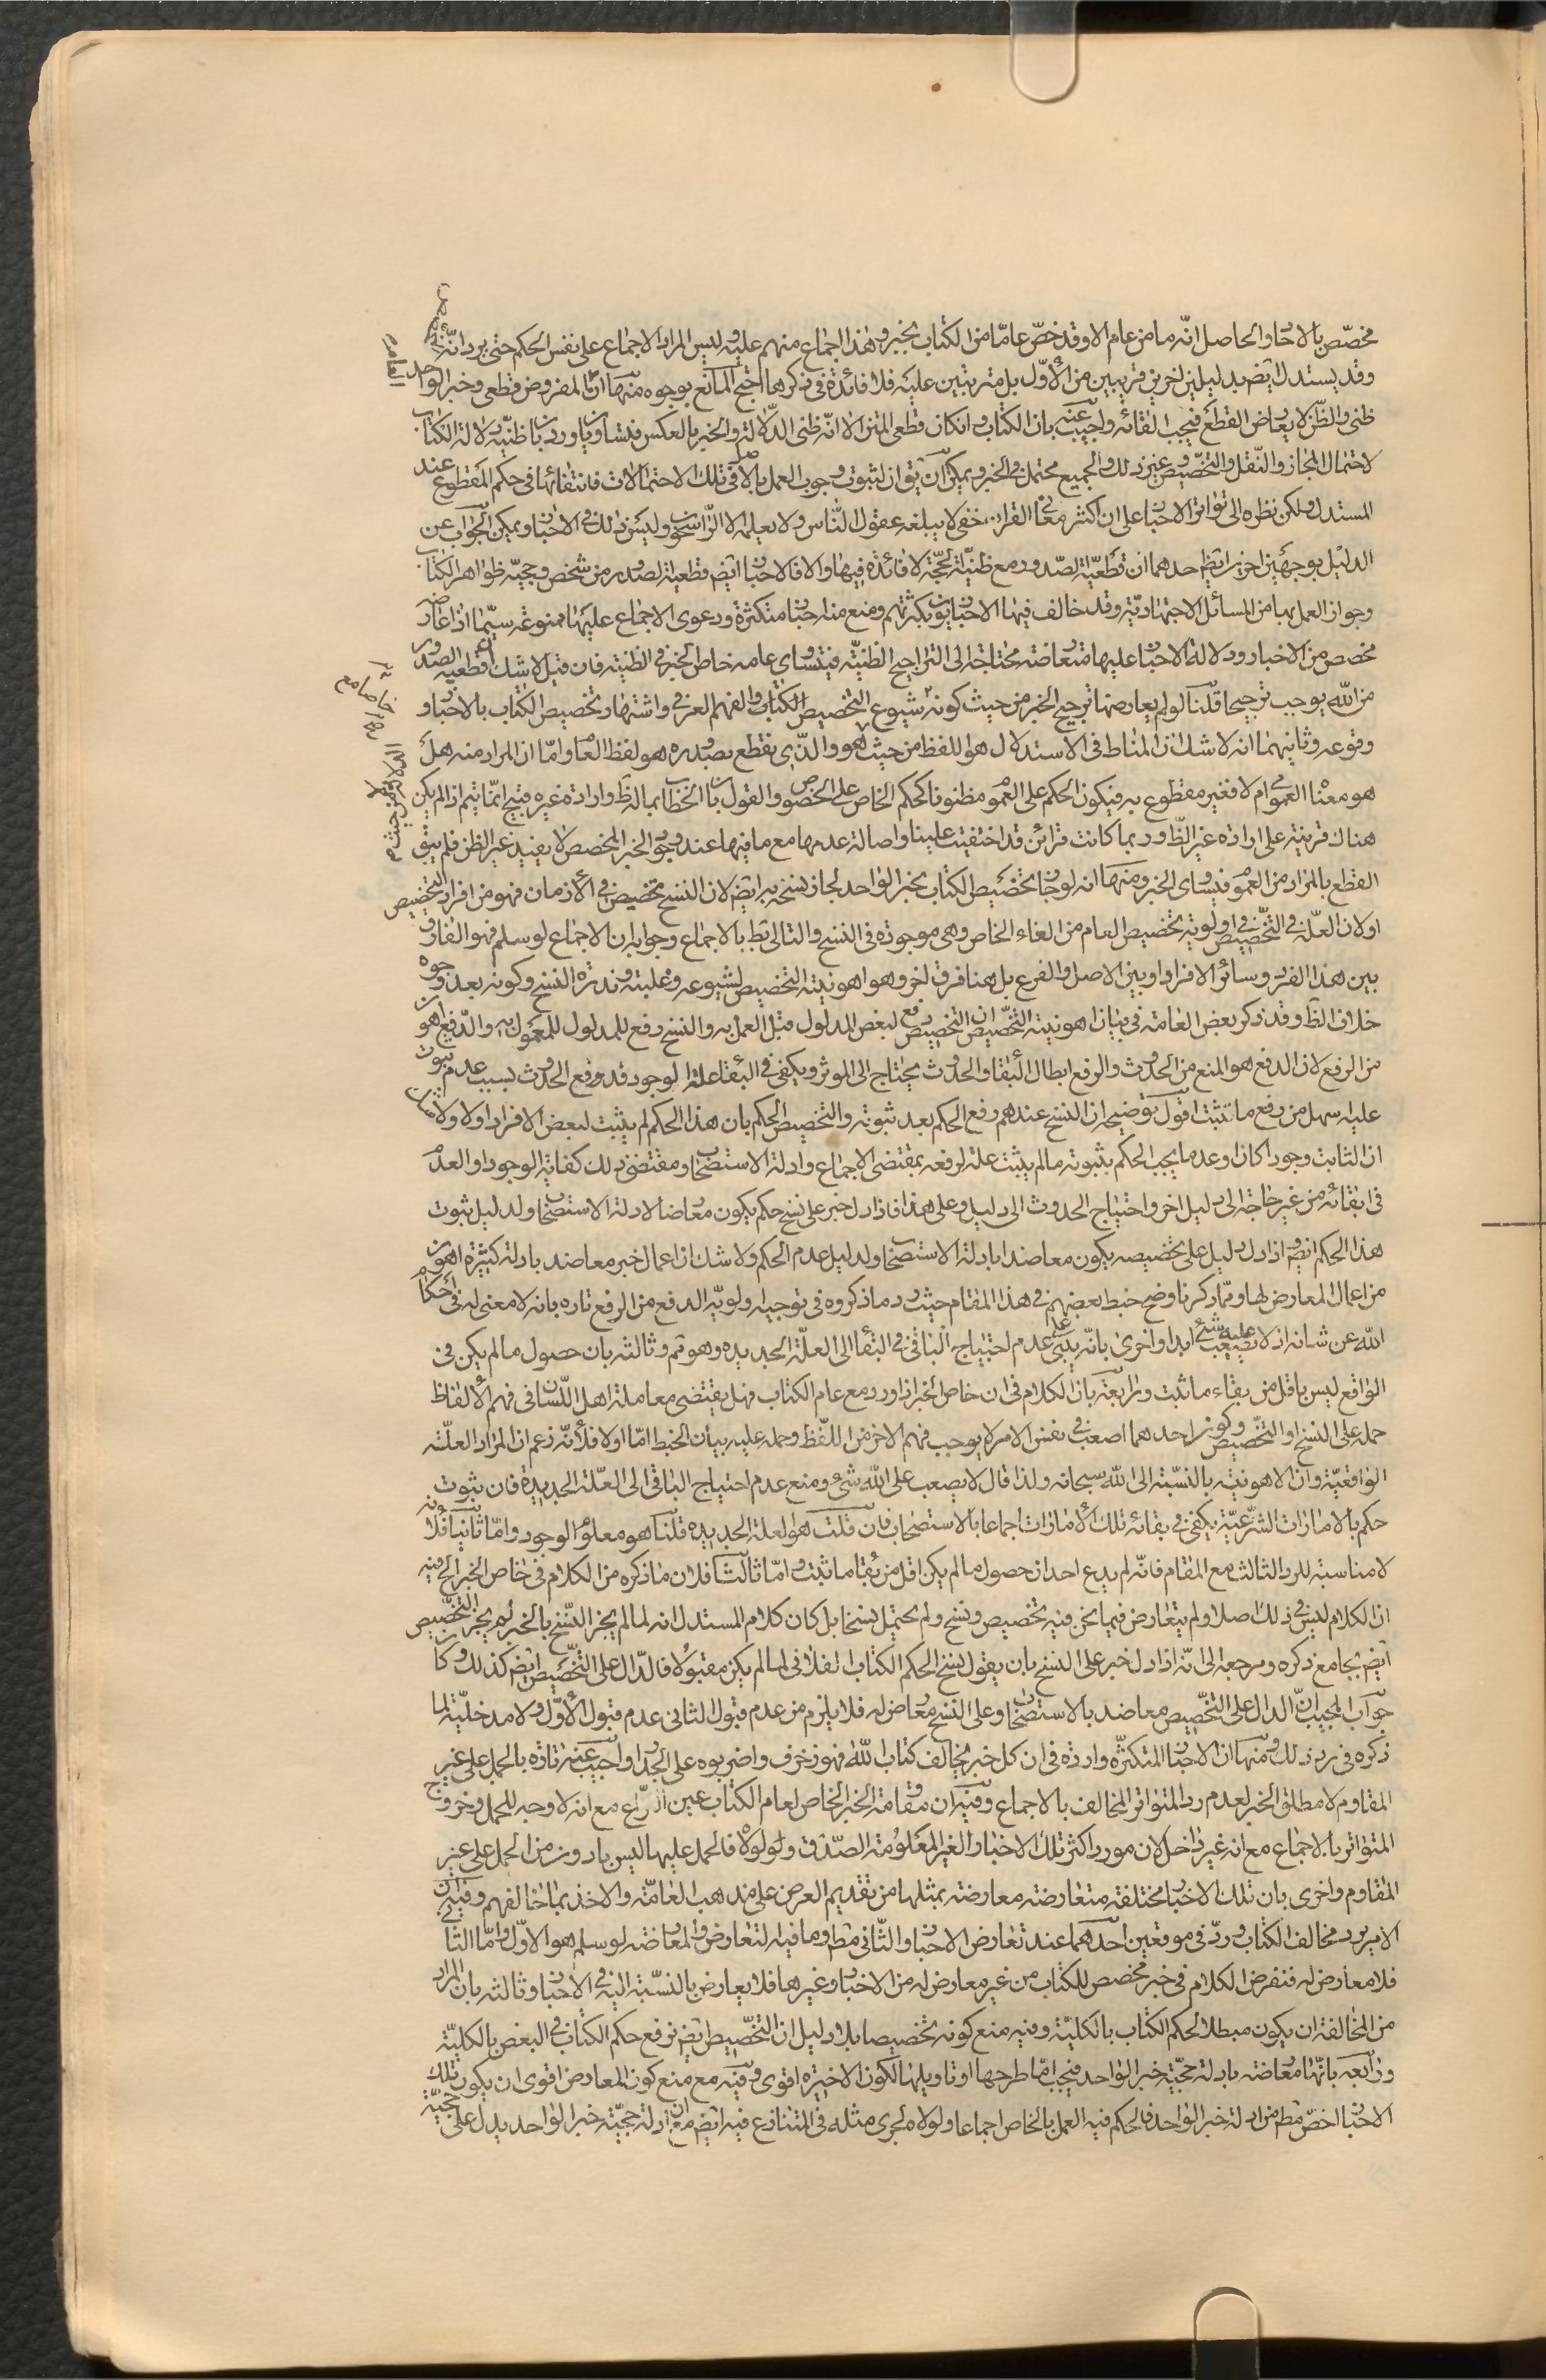 مخصّص بالاحاد والحاصل انّه ما من عام الا وقد خصّ عامّا من الكتاب بخبر وهذا اجماع منهم عليه وليس المراد الاجماع على نفس الحكم حتى يرد انّه
وقد يستدل ايضم بدليلين اخرين قريبين من الاوّل بل مترتبين عليه فلا فائدة في ذكرها احتج المانع بوجوه منها ان المفروض قطعى وخبر الواحد
ظنى والظّن لا يعارض القطع فيجب القائه واجيب عنه بان الكتاب وانكان قطعى المتن الا انّه ظنى الدّلالة والخبر بالعكس فتساويا ورد بان ظنيّة دلالة الكتاب
لاحتمال المجاز والنّقل والتخصيص وغير ذلك والجميع محتمل في الخبر ويمكن ان يق ان لثبوت وجوب العمل بالاصل في تلك الاحتمالات فانتفائها في حكم المقطوع عند
المستدل ولكن نظره الى تواتر الاخبار على ان اكثر معانى القران خفى لا يبلغه عقول النّاس ولا يعلمه الا الرّاسخون وليس ذلك في الاخبار ويمكن الجواب عن
الدليل بوجهين اخرين ايضم احدهما ان قطعيّة الصّدور مع ظنيّة الحجّة لا فائدة فيها والا فالاخبار ايضم قطعية الصدور من شخص وحجيّة ظواهر الكتاب
وجواز العمل بها من المسائل الاجتهاديّة وقد خالف فيها الاخباريّون بكثرتهم ومنع منه اخبار متكثرة ودعوى الاجماع عليها ممنوعة سيّما اذا عارض
مخصص من الاخبار ودلالة الاخبار عليها متعارضة محتاجة الى التراجيح الظنيّة فيتساوى عامه خاص الخبر في الظنية فان قيل لا شك ان قطعية الصدور
من الله يوجب ترجيحا قلنا لو لم يعارضها ترجيح الخبر من حيث كونه شيوع التخصيص الكتاب والفهم العرفي واشتهار تخصيص الكتاب بالاخبار و
وقوعه وثانيهما انه لا شك ان المناط في الاستدلال هو اللفظ من حيث هو والذى نقطع بصدوره هو لفظ العام وامّا ان المراد منه هل
هو معناه العمومى ام لا فغير مقطوع به فيكون الحكم على العموم مظنونا كحكم الخاص على الخصوص والقول بان الخطاب بماله ظ وارادة غيره قبيح انما يتم اذا لم يكن
هناك قرينة على ارادة غير الظّ وربما كانت قرائن قد اختفيت علينا واصالة عدمها مع ما فيها عند وجود الخبر المخصص لا يفيد غير الظن فلم يبق
القطع بالمراد من العموم فيساوى الخبر ومنها انه لو جاز تخصيص الكتاب بخبر الواحد لجاز نسخه به ايضم لان النسخ تخصيص في الازمان فهو من افراد التخصيص
او لان العلّة في التخصيص اولوية تخصيص العام من الغاء الخاص وهى موجودة في النسخ والتالى بط بالاجماع وجوابه ان الاجماع لو سلم فهو الفارق
بين هذا الفرد وسائر الافراد او بين الاصل والفرع بل هنا فرق اخر وهو اهونية التخصيص لشيوعه وغلبته وندرة النسخ وكونه بعد وجوه
خلاف الظ وقد ذكر بعض العامة في بيان اهونية التخصيص ان التخصيص دفع لبعض المدلول قبل العمل به والنسخ رفع للمدلول المعمول به والدّفع اهون
من الرفع لان الدفع هو المنع من الحدوث والرفع ابطال البقاء والحدوث يحتاج الى الموثر ويكفى في البقاء علة الوجود فدفع الحدوث بسبب عدم ثبوت
عليه سهل من رفع ما تثبت اقول توضيحه ان النسخ عندهم رفع الحكم بعد ثبوته والتخصيص الحكم بان هذا الحكم لم يثبت لبعض الافراد اولا ولا شك
ان الثابت وجودا كان او عدما يجب الحكم بثبوته ما لم يثبت علة لرفعه بمقتضى الاجماع وادلة الاستصحاب ومقتضى ذلك كفاية الوجود او العدم
في ابقائه من غير حاجة الى دليل اخر واحتياج الحدوث الى دليل وعلى هذا فاذا دل خبر على نسخ حكم يكون معارضا لادلة الاستصحاب ولدليل ثبوت
هذا الحكم ايضم واذا دل دليل على تخصيصه يكون معاضدا بادلة الاستصحاب ولدليل عدم الحكم ولا شك ان اعمال خبر معاضد بادلة كثيرة اهون
من اعمال المعارض لها وممّا ذكرنا وضح خبط بعضهم في هذا المقام حيث رد ما ذكروه في توجيه اولويّة الدفع من الرفع تارة بانه لا معنى له في احكام
الله عن شانه اذ لا يصعب عليه شئ ابدا واخرى بانّه يبتنى على عدم احتياج الباقى في البقاء الى العلّة الجديدة وهو تم وثالثه بان حصول ما لم يكن في
الواقع ليس باقل من بقاء ما ثبت ورابعة بان الكلام في ان خاص الخبر اذا ورد مع عام الكتاب فهل يقتضى معاملة اهل اللّسان في فهم الالفاظ
حمله على النسخ او التخصيص وكون احدهما اصعب في نفس الامر لا يوجب فهم الاخر من اللّفظ وحمله عليه بيان الخبط امّا اولا فلانّه زعم ان المراد العلّة
الواقعيّة وان الاهونية بالنسبة الى الله سبحانه ولذا قال لا يصعب على الله شئ ومنع عدم احتياج الباقى الى العلّة الجديدة فان ثبوت
حكم بالامارات الشرعيّة يكفى في بقائه تلك الامارات اجماعا بالاستصحاب فان قلت هو العلة الجديدة قلنا هو معلوم الوجود وامّا ثانيا فلانه
لا مناسبة للرد الثالث مع المقام فانّه لم يدع احد ان حصول ما لم يكن اقل من بقاء ما ثبت وامّا ثالثا فلان ما ذكره من الكلام في خاص الخبر الخ فيه
ان الكلام ليس في ذلك اصلا ولم يتعارض فيما نحن فيه تخصيص ونسخ ولم يحتمل نسخا بل كان كلام المستدل انه لما لم يجز النّسخ بالخبر لم يجز التخصيص
ايضم بجامع ذكره ومرجعه الى انّه اذا دل خبر على النسخ بان يقول نسخ الحكم الكتاب الفلانى لما لم يكن مقبولا فالدّال على التخصيص ايضم كذلك وكان
جواب المجيب ان الدال على التخصيص معاضد بالاستصحاب وعلى النسخ معارض له فلا يلزم من عدم قبول الثانى عدم قبول الاوّل ولا مدخليّة لما
ذكره في رد ذلك ومنها ان الاخبار المتكثّرة واردة في ان كل خبر يخالف كتاب اللّه فهو زخرف واضربوه على الجدار واجيب عنه تارة بالحمل على غير
المقاوم لا مطلق الخبر لعدم رد المتواتر المخالف بالاجماع وفيه ان مقاومة الخبر الخاص لعام الكتاب عين النزاع مع انه لا وجه للحمل وخروج
المتواتر بالاجماع مع انه غير داخل لان مورد اكثر تلك الاخبار الغير المعلومة الصّدق ولولاه فالحمل عليها ليس بادون من الحمل على غير
المقاوم واخرى بان تلك الاخبار مختلفة متعارضة معارضة بمثلها من تقديم العرض على مذهب العامّة والاخذ بما خالفهم وفيه ان
الامر برد مخالف الكتاب ورد في موقعين احدهما عند تعارض الاخبار والثّانى مطم وما فيه التعارض والمعارضة لو سلم هو الاوّل وامّا الثانى
فلا معارض له فنفرض الكلام في خبر مخصص للكتاب من غير معارض له من الاخبار وغيرها فلا يعارض بالنسّبة اليه في الاخبار وثالثه بان المراد
من المخالفة ان يكون مبطلا لحكم الكتاب بالكليّة وفيه منع كونه تخصيصا بلا دليل ان التخصيص ايضم رفع حكم الكتاب في البعض بالكليّة
ورابعه بانّها معارضة بادلة حجيّة خبر الواحد فيجب امّا طرحها او تاويلها لكون الاخيرة اقوى وفيه مع منع كون المعارض اقوى ان يكون تلك
الاخبار اخصّ مطم من ادلة خبر الواحد فالحكم فيه العمل بالخاص اجماعا ولولاه لجرى مثله في المتنازع فيه ايضم مع ان ادلة حجيّة خبر الواحد يدل على حجيّة